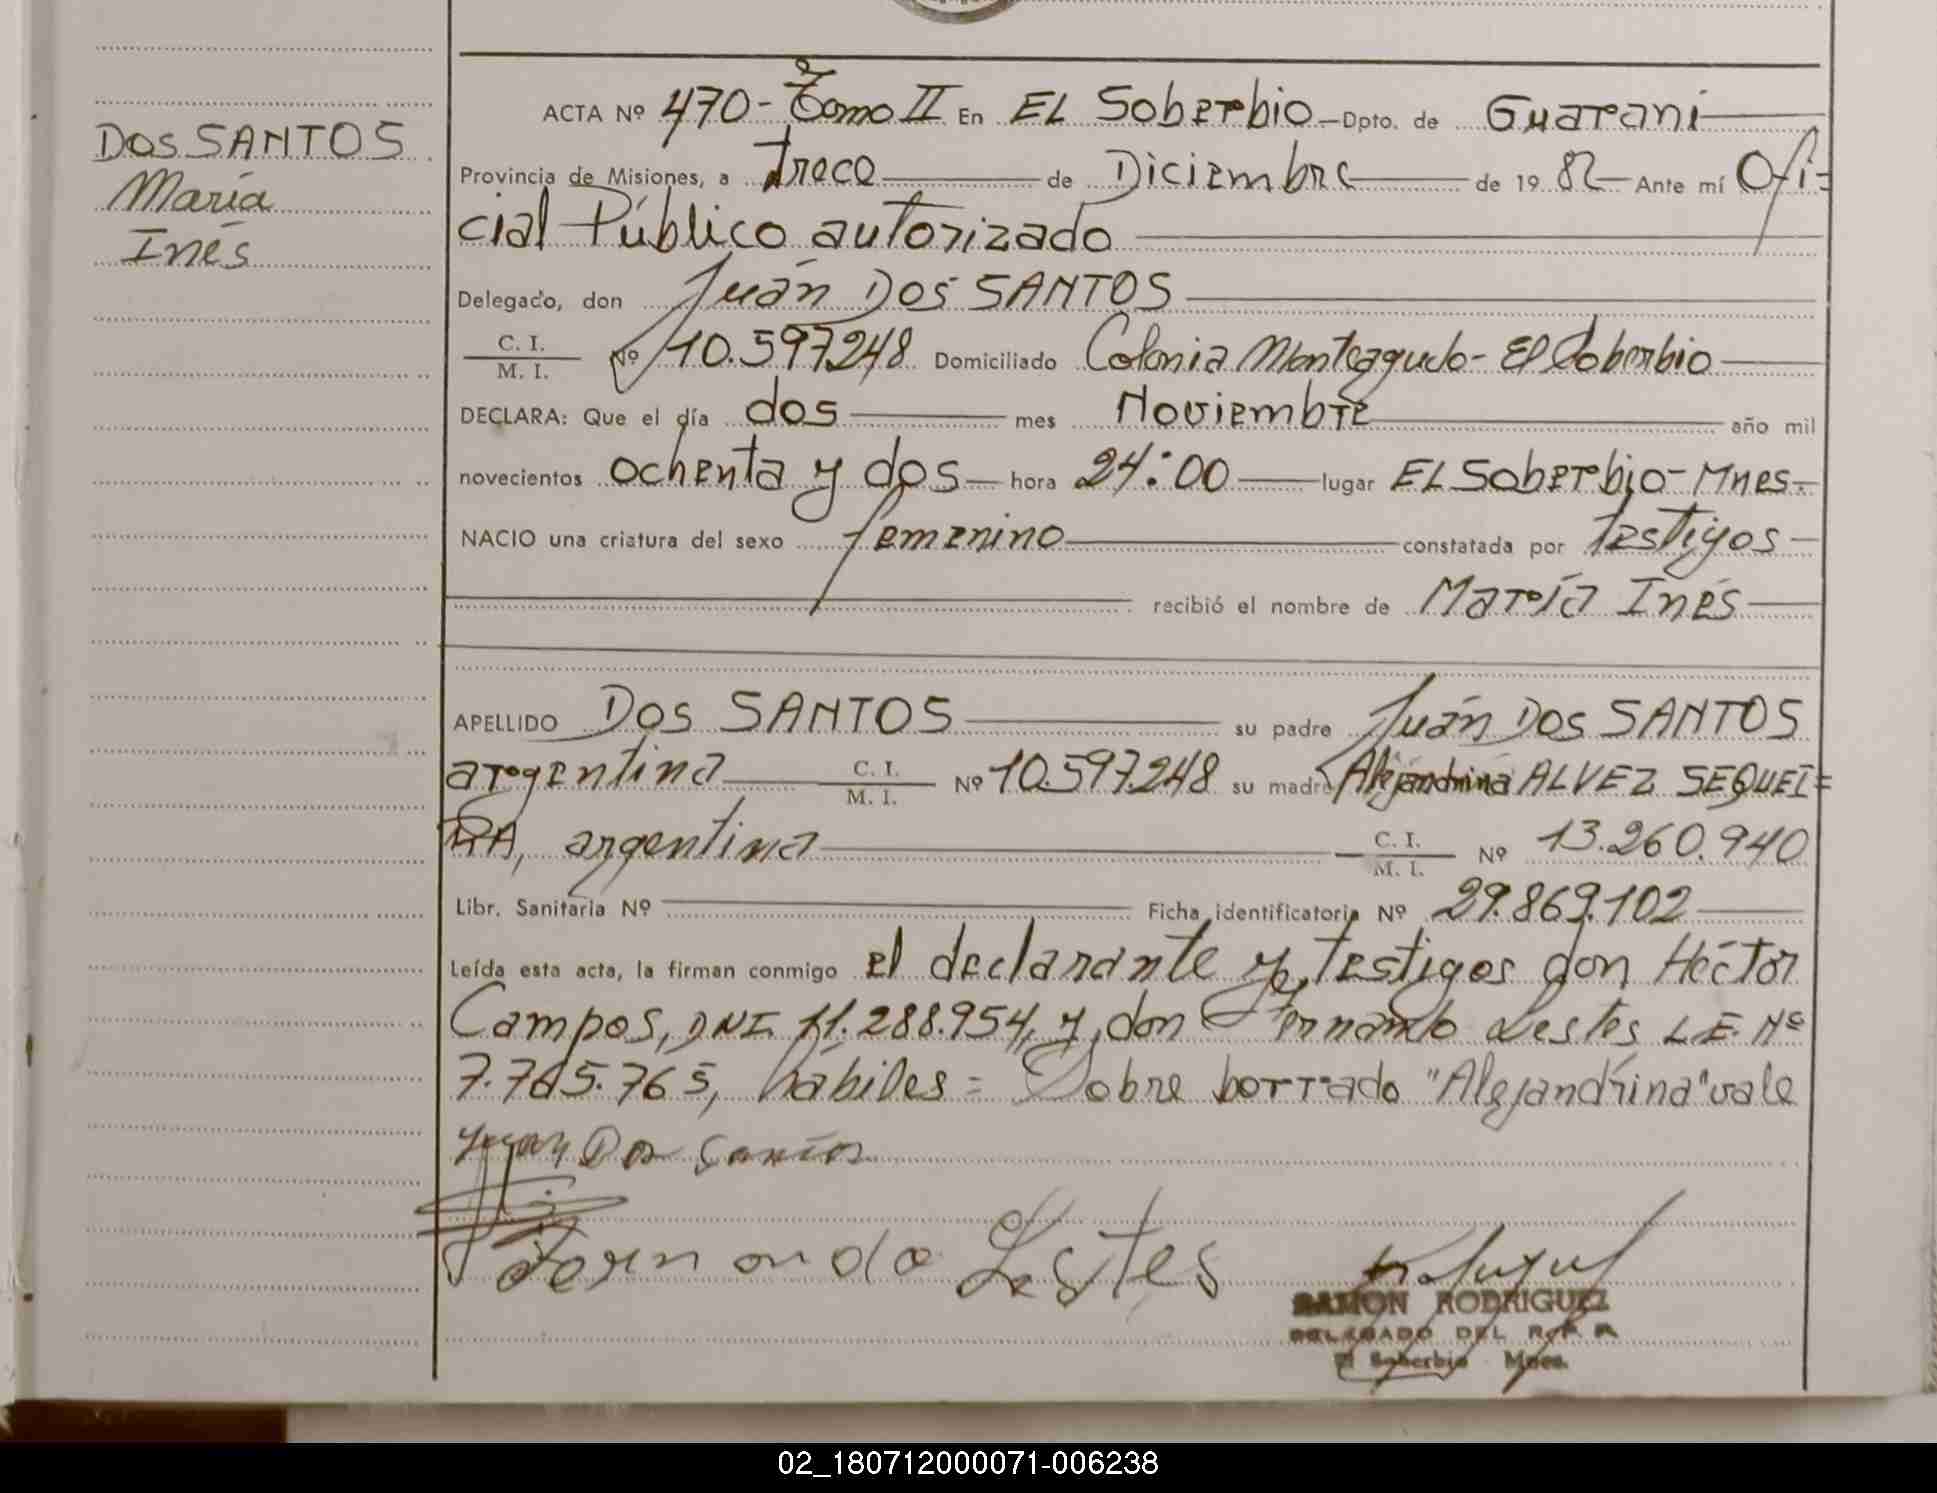 Dos SANTOS
María
Inés
ACTA Nº 470 - Tomo II En EL Soberbio - Dpto. de Guarani
Provincia de Misiones, a trece de Diciembre de 1982 Ante mí Ofi=
cial Público autorizado
Delegado, don Juán Dos SANTOS
C. I.
M. I. Nº 10.597.248 Domiciliado Colonia Monteagudo - El Soberbio
DECLARA: Que el día dos mes Noviembre año mil
novecientos ochenta y dos hora 24:00 lugar EL Soberbio - Mnes.
NACIO una criatura del sexo femenino constatada por testigos
recibió el nombre de María Inés
APELLIDO Dos SANTOS su padre Juán Dos SANTOS
argentina C. I. M. I. Nº 10.597.248 su madre Alejandrina ALVEZ SEQUEI=
RA, argentina C. I. M. I. Nº 13.260.940
Libr. Sanitaria Nº Ficha identificatoria Nº 29.869.102
Leída esta acta, la firman conmigo el declarante y testigos don Héctor
Campos, DNI 11.288.954, y don Fernando Lestes L.E. Nº
7.765.765, hábiles = Sobre borrado "Alejandrina" vale
Juan Dos Santos
Fernando Lestes
RAMON RODRIGUEZ
DELEGADO DEL R. P. P.
El Soberbio Mnes.
02_180712000071-006238